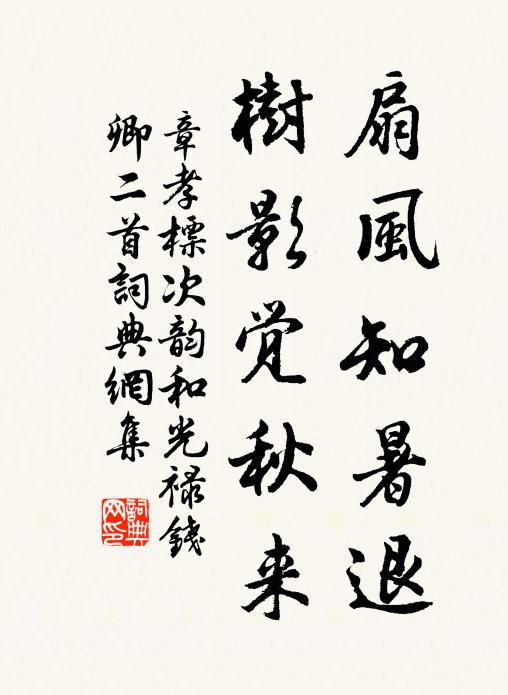 扇風知暑退
樹影覚秋来
章孝標次韵和光禄錢
卿二首詞典網集
詞典
网印